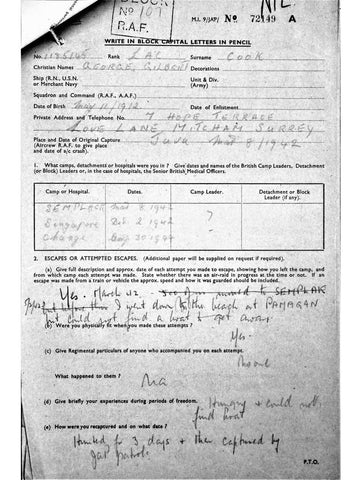 BLOCK
No 107
R.A.F.
NIL
M.I. 9/JAP/ No 72149 A
WRITE IN BLOCK CAPITAL LETTERS IN PENCIL
No. Rank LAC Surname COOK
Christian Names GEORGE, GILBERT Decorations
Ship (R.N., U.S.N. or Merchant Navy Unit & Div. (Army)
Squadron and Command (R.A.F., A.A.F.)
Date of Birth May 11/1912 Date of Enlistment
Private Address and Telephone No. 7 HOPE TERRACE
LOVE LANE MITCHAM SURREY
Place and Date of Original Capture Java Mar 8/1942
(Aircrew R.A.F. to give place and date of a/c crash)
1. What camps, detachments or hospitals were you in? Give dates and names of the British Camp Leaders, Detachment
(or Block) Leaders or, in case of the hospitals, the Senior British Medical Officers.
Camp or Hospital. Dates. Camp Leader. Detachment or Block Leader (if any).
SEMPLACK Mar 8 1942
Singapore 1942
?
2. ESCAPES OR ATTEMPTED ESCAPES. (Additional paper will be supplied on request if required).
(a) Give full description and approx. date of each attempt you made to escape, showing how you left the camp, and
from which camp each attempt was made. State whether there was an air-raid in progress at the time or not. If an
escape was made from a train or vehicle the approx. speed and how it was guarded should be included.
Yes. March 42. moved to SEMPLAK
I went down to the beach at PAMAGAN
but could not find a boat & get away
(b) Were you physically fit when you made these attempts?
Yes.
(c) Give Regimental particulars of anyone who accompanied you on each attempt.
None
What happened to them?
Na
(d) Give briefly your experiences during periods of freedom. Hungry & could not
find boat
(e) How were you recaptured and on what date?
Hunted for 3 days & then captured by
Jap patrols
P.T.O.